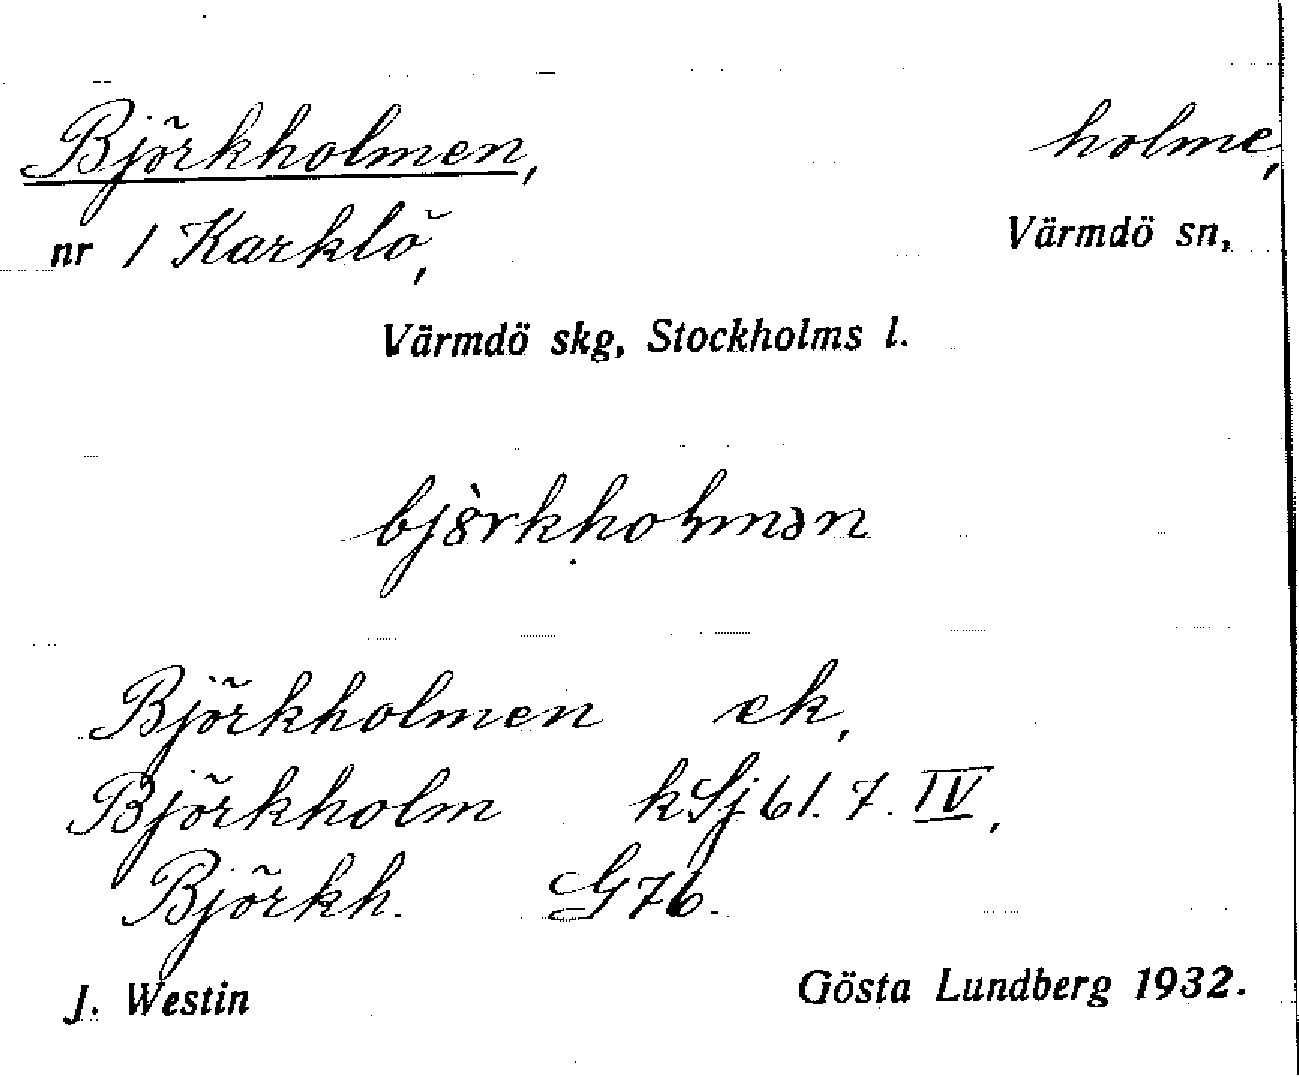 Björkholmen, holme,
nr 1 Karklö, Värmdö sn,
Värmdö skg, Stockholms l.
bjö̀rkhoļmən
Björkholmen ek,
Björkholm kSj 61. 7. IV,
Björkh. G76.
J. Westin Gösta Lundberg 1932.